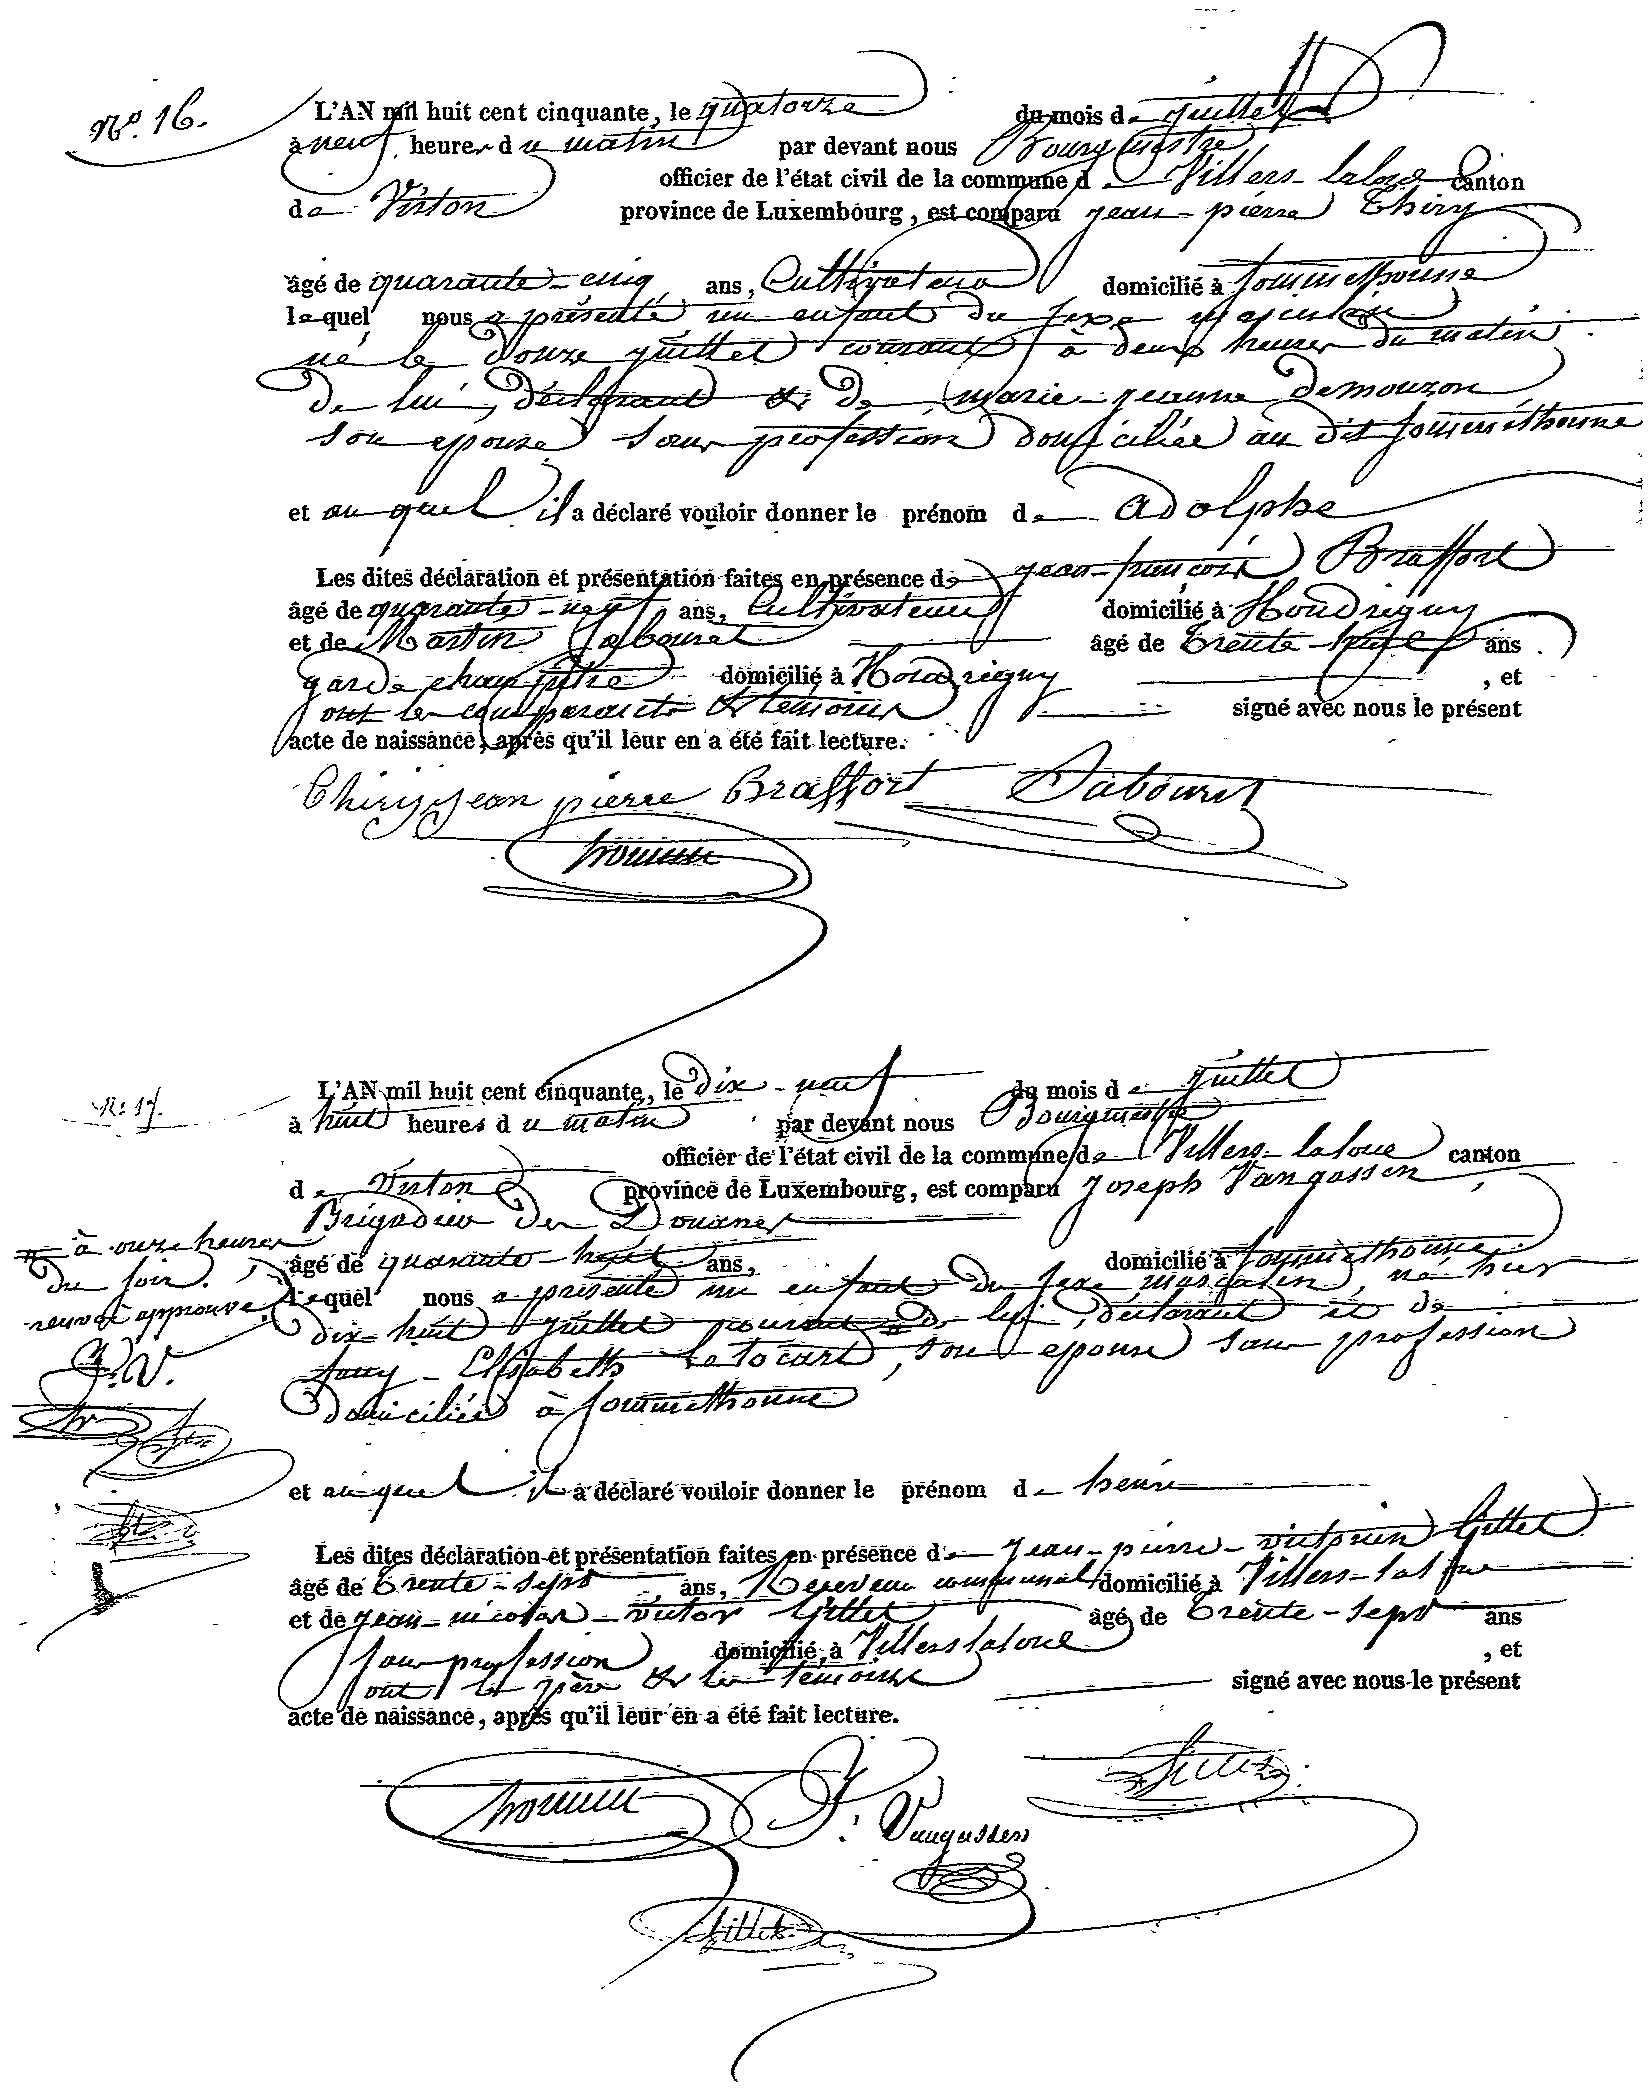 N.º 16.
L'AN mil huit cent cinquante, le quatorze du mois de juillet
à neuf heures du matin par devant nous Bourgmestre
officier de l'état civil de la commune de Villers-laloue canton
de Virton province de Luxembourg, est comparu jean-pierre Thiry
âgé de quarante-cinq ans, Cultivateur domicilié à Sommethonne
lequel nous a présenté un enfant du sexe masculin
né le douze juillet courant à deux heures du matin
de lui, déclarant & de marie-jeanne demouzon
son épouse sans profession domiciliée au dit sommethonne
et au quel il a déclaré vouloir donner le prénom de adolphe
Les dites déclaration et présentation faites en présence de jean-françois Braffort
âgé de quarante-neuf ans, Cultivateur domicilié à Houdrigny
et de Martin Sabouret âgé de trente-huit ans
garde champêtre domicilié à Houdrigny , et
ont le comparant & témoins signé avec nous le présent
acte de naissance, après qu'il leur en a été fait lecture.
Thiry jean pierre Braffort Sabouret
N.º 17.
L'AN mil huit cent cinquante, le dix-neuf du mois de juillet
à huit heures du matin par devant nous Bourgmestre
officier de l'état civil de la commune de Villers-laloue canton
de Virton province de Luxembourg, est comparu Joseph Vangassen,
Brigadier des Douanes
âgé de quarante-huit ans, domicilié à sommethonne
lequel nous a présenté un enfant du sexe masculin, né hier
dix-huit juillet courant # de lui, déclarant et de
fany-Elisabeth Latocart, son épouse sans profession
domiciliée à sommethonne
# à onze heures
du soir.
renvoi approuvé
J.V.
et au quel il a déclaré vouloir donner le prénom de henri
Les dites déclaration et présentation faites en présence de jean-pierre-victorien Gillet
âgé de trente-sept ans, Receveur communal domicilié à Villers-laloue
et de jean-nicolas-victor Gillet âgé de trente-sept ans
sans profession domicilié à Villers laloue , et
ont le père & les témoins signé avec nous le présent
acte de naissance, après qu'il leur en a été fait lecture.
J. Vangassen
Gillet
Gillet